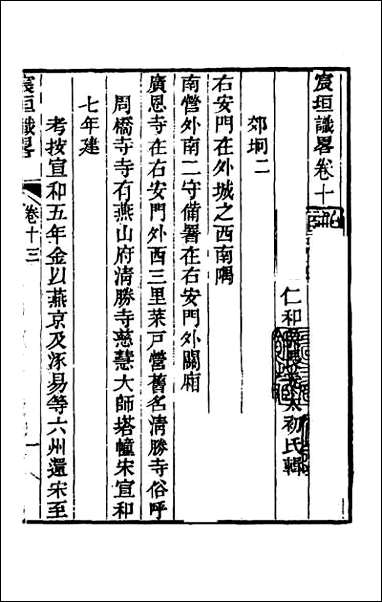 宸垣識畧卷十
仁和
太初氏輯
郊坰二
右安門在外城之西南隅
南營外南二守備署在右安門外關廂
廣恩寺在右安門外西三里菜戸營舊名清勝寺俗呼
周橋寺寺有燕山府清勝寺慈慧大師塔幢宋宣和
七年建
考按宣和五年金以燕京及涿易等六州還宋至
宸垣識畧
卷十三
一